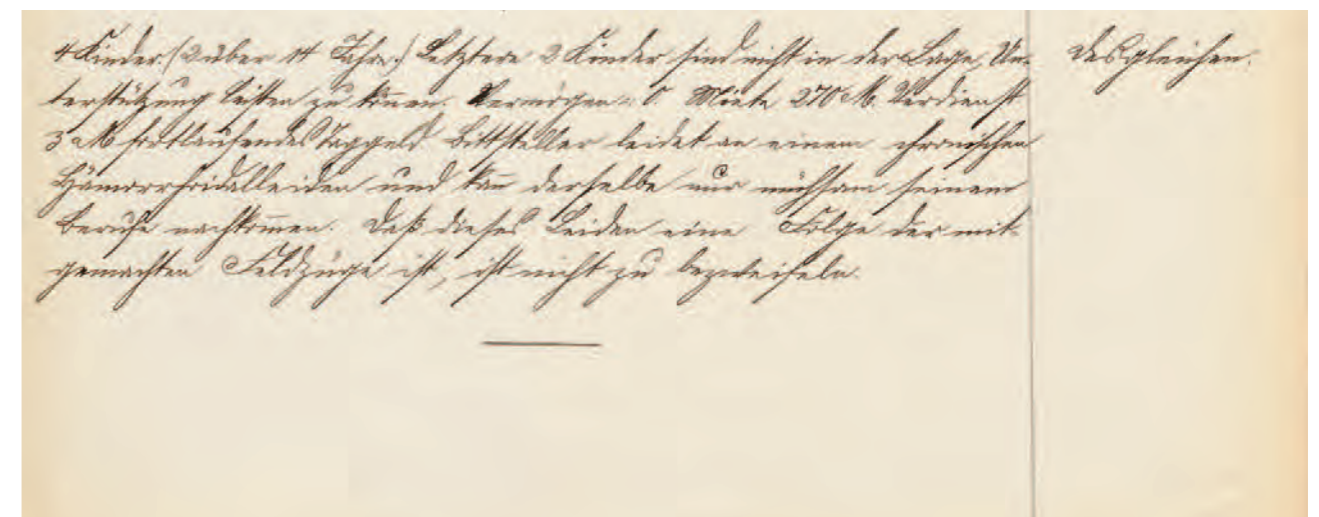 4 Kinder. (2 über 14 Jahre.) Letztere 2 Kinder sind nicht in der Lage, Un-
terstützung leisten zu können. Vermögen: 0. Miete 270 M. Verdienst
3 M fortlaufendes Taggeld. Bittsteller leidet an einem chronischen
Hämorrhoidalleiden und kan̄ derselbe nur mühsam seinem
Berufe nachkom̄en. Daß dieses Leiden eine Folge der mit-
gemachten Feldzüge ist, ist nicht zu bezweifeln.
Desgleichen.